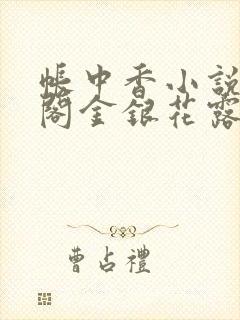 帳中香小說
閣金銀花露
曹占禮